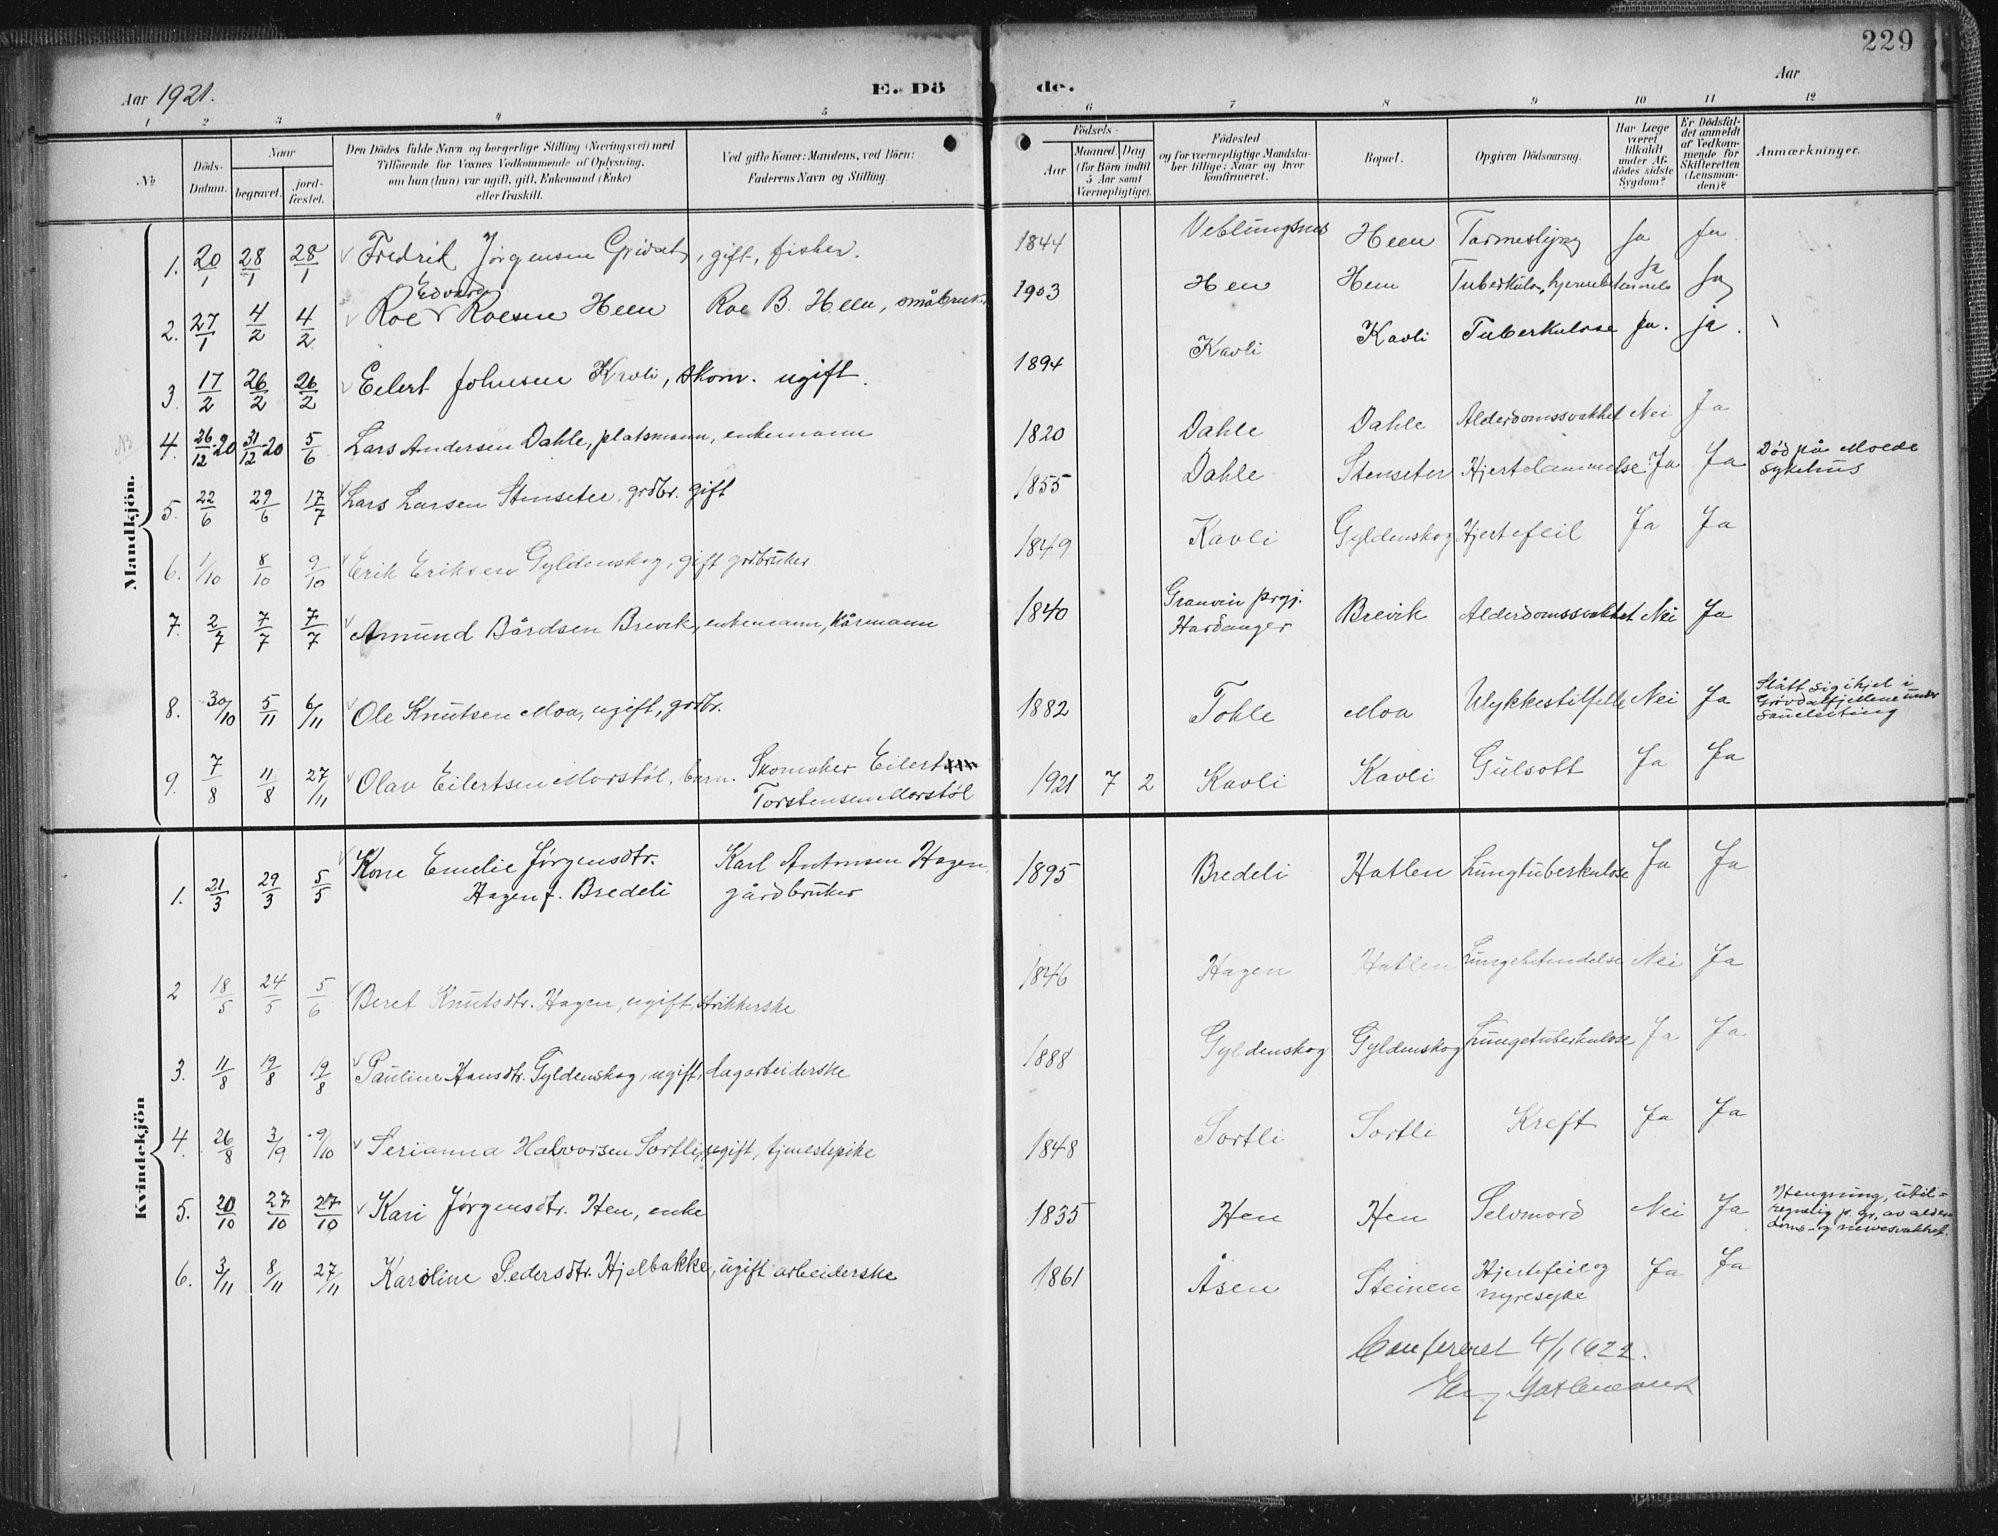 229
Aar 1921.
E. Dö
de.
Aar
1 2 3 4 5 6 7 8 9 10 11 12
No
Döds-Datum.
Naar
begravet.
jord-fæstet.
Den Dödes fulde Navn og borgerlige Stilling (Næringsvei) med
Tilföiende for Voxnes Vedkommende af Oplysning,
om han (hun) var ugift, gift, Enkemand (Enke)
eller fraskilt.
Ved gifte Koner: Mandens, ved Börn:
Faderens Navn og Stilling.
Födsels-
Aar
Maaned Dag
(for Börn indtil
5 Aar samt
Værnepligtige).
Födested
og for værnepligtige Mandska-
ber tillige: Naar og hvor
konfirmeret.
Bopæl.
Opgiven Dödsaarsag.
Har Læge
været
tilkaldt
under Af-
dödes sidste
Sygdom?
Er Dödsfal-
det anmeldt
af Vedkom-
mende for
Skifteretten
(Lensman-
den)?
Anmærkninger.
Mandkjön.
1. 20/1 28/1 28/1 Fredrik Jörgensen Gridset, gift, fisker. 1844 Veblungsnes Heen Tarmeslyng Ja Ja
2. 27/1 4/2 4/2 Roe Edvard Roesen Heen Roe B. Heen, småbruk. 1903 Hen Hem Tuberkulos, hjernebetennels Ja Ja
3. 17/2 26/2 26/2 Eilert Johnsen Kavli, skom. ugift. 1894 Kavli Kavli Tuberkulose Ja. ja.
NB 4. 26/12-20 31/12-20 5/6 Lars Andersen Dahle, platsmann, enkemann 1820 Dahle Dahle Alderdomssvakhet Nei Ja
5. 22/6 29/6 17/7 Lars Larsen Stenseter. grdbr. gift 1855 Dahle Stenseter Hjertelammelse Ja Ja Död på Molde
sykehus
6. 1/10 8/10 9/10 Erik Eriksen Gyldenskog, gift grdbruker 1849 Kavli Gyldenskog Hjertefeil Ja Ja
7. 2/7 7/7 7/7 Amund Bårdsen Brevik, enkemann, kårmann 1840 Granvin prgj.
Hardanger Brevik Alderdomssvakhet Nei Ja
8. 30/10 5/11 6/11 Ole Knutsen Moa, ugift, grdbr. 1882 Tokle Moa Ulykkestilfelle Nei Ja Slått sig ihjel i
Grövdalsfjellene under
saueleiting
9. 7/8 11/8 27/11 Olav Eilertsen Morstöl, barn. Skomaker Eilert
Torstensen Morstöl 1921 7 2 Kavli Kavli Gulsott Ja Ja
Kvindekjön
1. 21/3 29/3 5/5 Kone Emelie Jörgensdtr.
Hagen f. Bredeli Karl Antonsen Hagen,
gårdbruker 1895 Bredeli Hatlen Lungtuberkulose Ja Ja
2 18/5 24/5 5/6 Beret Knutsdtr. Hagen, ugift, strikkerske 1846 Hagen Hatlen Lungebetendelse Nei Ja
3. 11/8 19/8 19/8 Pauline Hansdtr. Gyldenskog, ugift, dagarbeiderske 1888 Gyldenskog Gyldenskog Lungetuberkulose Ja Ja
4. 26/8 3/9 9/10 Serianna Halvorsen Sortli, ugift, tjenestepike 1848 Sortli Sortli Kreft Ja Ja
5. 20/10 27/10 27/10 Kari Jörgensdtr. Hen, enke 1835 Hen Hen Selvmord Nei Ja Hengning, util-
regnelig p. gr. av alder-
doms- og nervesvakhet.
6. 3/11 8/11 27/11 Karoline Pedersdtr. Hjelbakke, ugift arbeiderske 1861 Åsen Steinen Hjertefeil og
nyresyke Ja Ja
Confereret 4/1 1922.